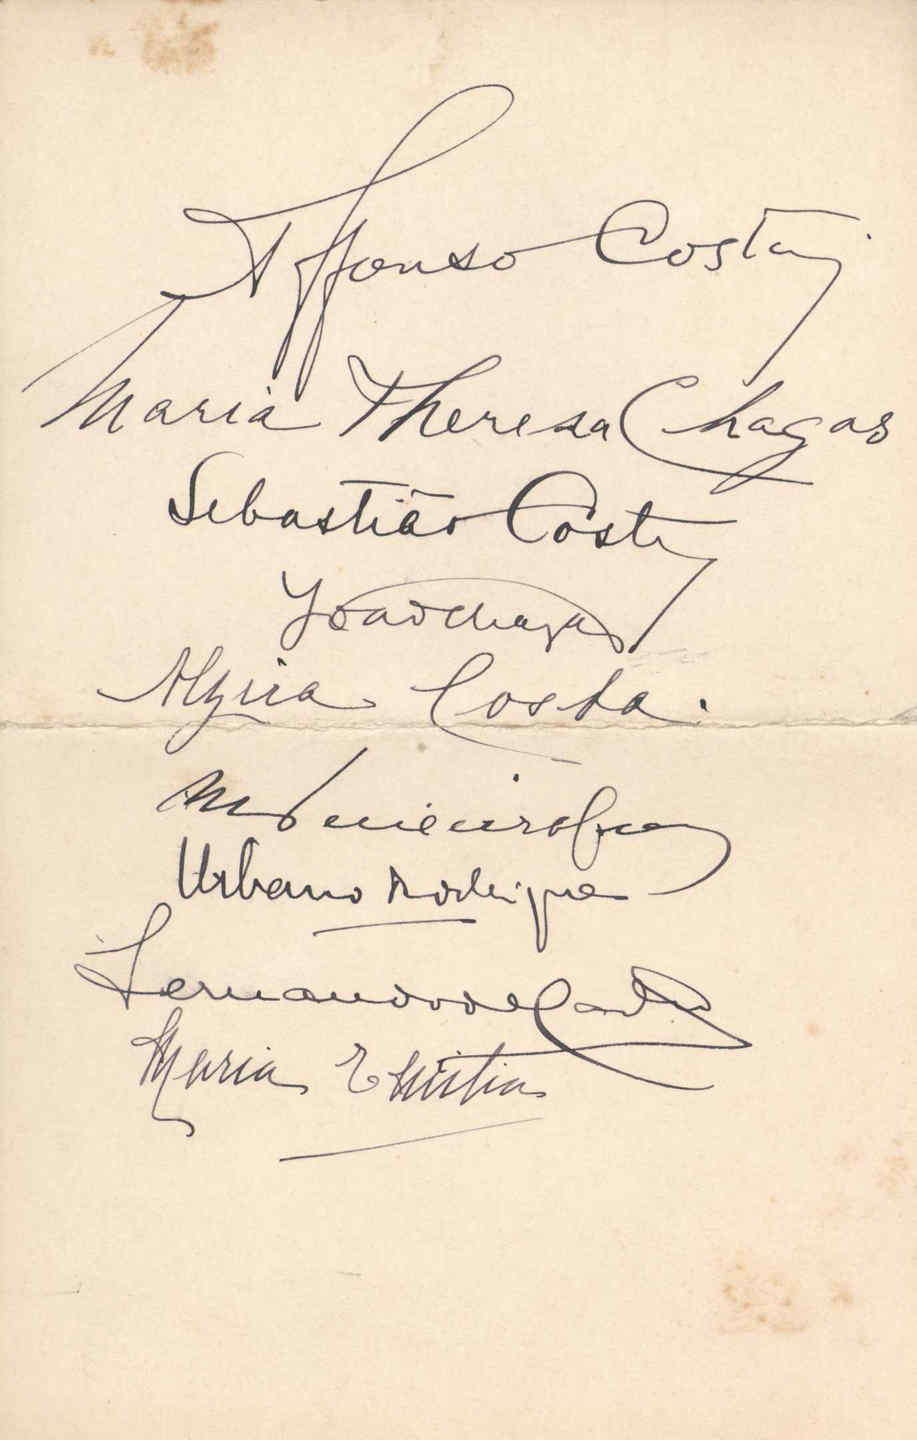 Affonso Costa
Maria Theresa Chagas
Sebastião Costa
João Chagas
Alzira Costa.
Urbano Rodrigues
Fernando de Castro
Maria Emilia